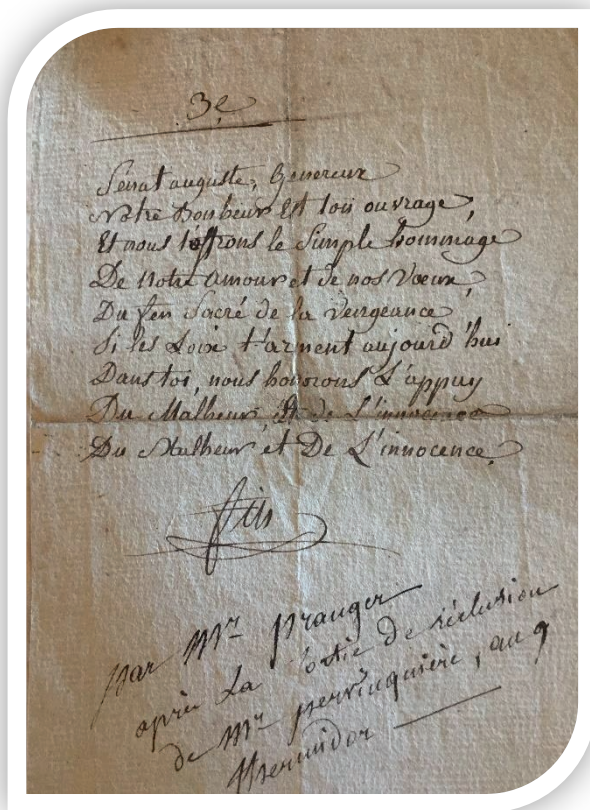 3e
Sénat auguste, Genereux
Notre bonheur Est ton ouvrage,
Et nous t'offrons le Simple hommage
De notre amour et de nos Vœux,
Du feu Sacré de la Vengeance
Si les Loix t'arment aujourd'hui
Dans toi, nous honorons L'appuy
Du Malheur, Et de L'innocence
Du Malheur et De L'innocence.
fin
par Mr pranger
après La Sortie De réclusion
de Mr pervinquière, an 9
thermidor